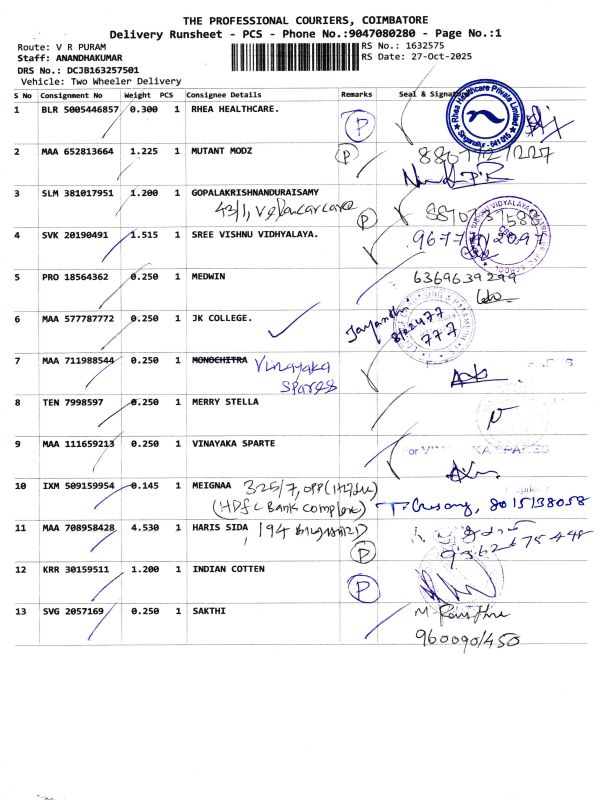 THE PROFESSIONAL COURIERS, COIMBATORE
Delivery Runsheet - PCS - Phone No.:9047080280 - Page No.:1
Route: V R PURAM
RS No.: 1632575
Staff: ANANDHAKUMAR
RS Date: 27-Oct-2025
DRS No.: DCJB163257501
Vehicle: Two Wheeler Delivery
S No Consignment No Weight PCS Consignee Details Remarks Seal & Signature
1 BLR 5005446857 0.300 1 RHEA HEALTHCARE. P
Rhea Healthcare Private Limited
Singanallur - 641 015
2 MAA 652813664 1.225 1 MUTANT MODZ P
3 SLM 381017951 1.200 1 GOPALAKRISHNANDURAISAMY P
43/1,
4 SVK 20190491 1.515 1 SREE VISHNU VIDHYALAYA.
5 PRO 18564362 0.250 1 MEDWIN 6369639299
6 MAA 577787772 0.250 1 JK COLLEGE. Jayanthi
777
7 MAA 711988544 0.250 1 MONOCHITRA Vinayaka
Spares
8 TEN 7998597 0.250 1 MERRY STELLA
9 MAA 111659213 0.250 1 VINAYAKA SPARTE
10 IXM 509159954 0.145 1 MEIGNAA 325/7, opp
(HDFC Bank Complex) 8015138058
11 MAA 708958428 4.530 1 HARIS SIDA, 194 P
9362675445
12 KRR 30159511 1.200 1 INDIAN COTTEN P
13 SVG 2057169 0.250 1 SAKTHI M
9600901450